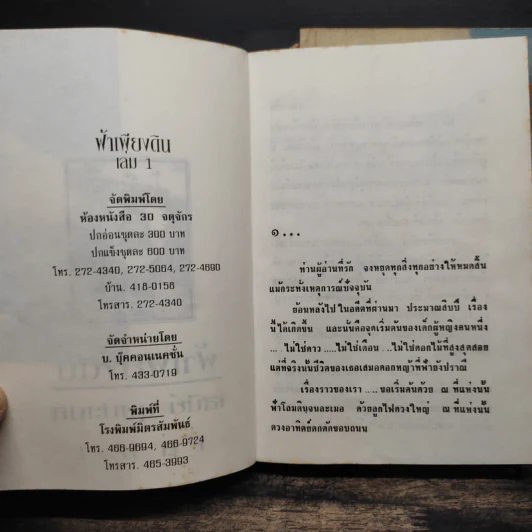 ฟ้าเพียงดิน
เล่ม 1
จัดพิมพ์โดย
ห้องหนังสือ 30 จตุจักร
ปกอ่อนชุดละ 300 บาท
ปกแข็งชุดละ 600 บาท
โทร. 272-4340, 272-5064, 272-4690
บ้าน. 418-0158
โทรสาร. 272-4340
จัดจำหน่ายโดย
บ. บุ๊คคอนเนคชั่น
โทร. 433-0719
พิมพ์ที่
โรงพิมพ์มิตรสัมพันธ์
โทร. 466-9694, 466-9724
โทรสาร. 465-3993
๑...
ท่านผู้อ่านที่รัก จงหยุดทุกสิ่งทุกอย่างให้หมดสิ้น
แม้กระทั่งเหตุการณ์ปัจจุบัน
ย้อนหลังไปในอดีตที่ผ่านมา ประมาณสิบปี เรื่อง
นี้ได้เกิดขึ้น และนั่นคือจุดเริ่มต้นของเด็กผู้หญิงคนหนึ่ง
... ไม่ใช่ดาว .....ไม่ใช่เดือน ..ไม่ใช่ดอกไม้ที่สูงสุดสอย
แต่ที่จริงนั้นชีวิตของเธอเสมอดอกหญ้าที่ฟ้ายังปรานี
เรื่องราวของเรา ....ขอเริ่มต้นด้วย ณ ที่แห่งนั้น
ฟ้าโลมดินจูบละเมอ ด้วยลูกไฟดวงใหญ่ ณ ที่แห่งนั้น
ดวงอาทิตย์ตกดัดขอบถนน